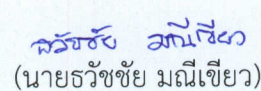 ธวัชชัย มณีเขียว
(นายธวัชชัย มณีเขียว)